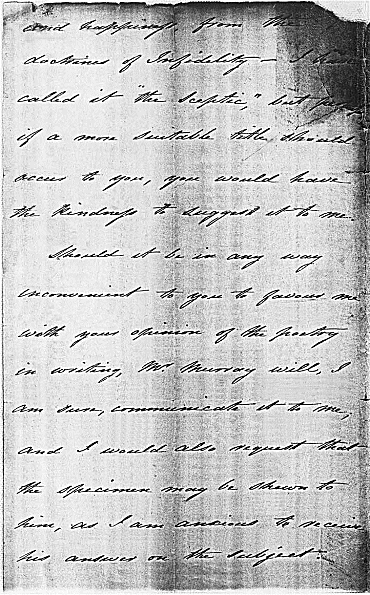 and happiness, from the
doctrines of Infidelity – I have
called it "the Sceptic," but
if a more suitable title should
occur to you, you would have
the kindness to suggest it to me.
Should it be in any way
inconvenient to you to favour me
with your opinion of the poetry
in writing, Mr Murray will, I
am sure, communicate it to me,
and I would also request that
the specimen may be shewn to
him, as I am anxious to receive
his answer on the subject.